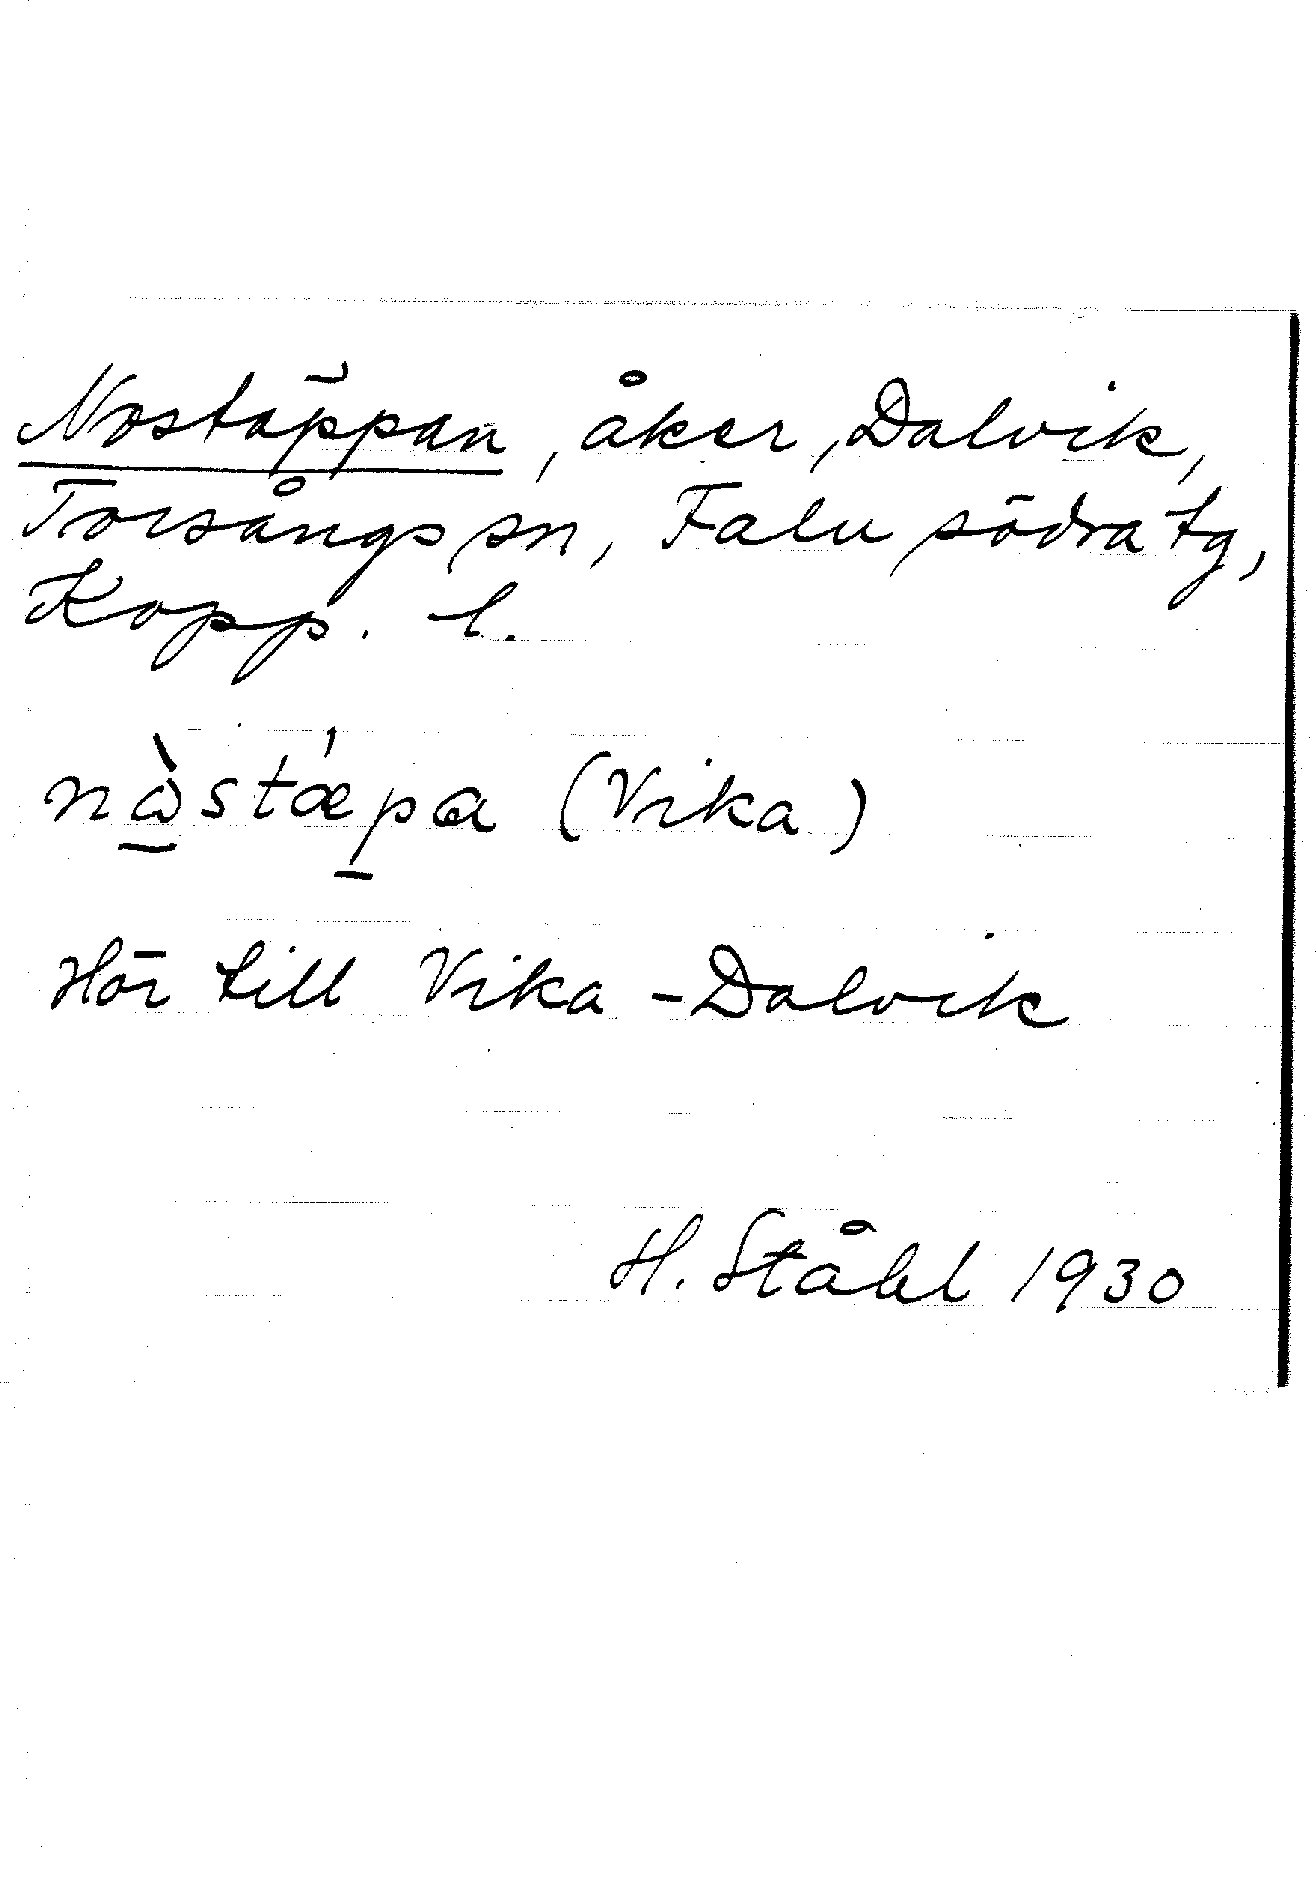 Nostäppan, åker, Dalvik,
Torsångs sn, Falu södra tg,
Kopp. l.
nòstǽpa (Vika)
Hör till Vika-Dalvik
H. Ståhl 1930